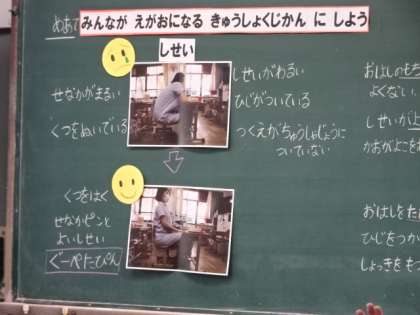 めあて みんなが えがおになる きゅうしょくじかん に しよう
しせい
せなかがまるい
くつをぬいでいる
しせいがわるい
ひじがついている
つくえがちゅうしゃじょうに
ついていない
おはしのもち
よくない。
しせいが
かおがよこを
くつをはく
せなかピンと
よいしせい
ぐーぺたぴん
おはしをた
ひじをつか
しょっきをも